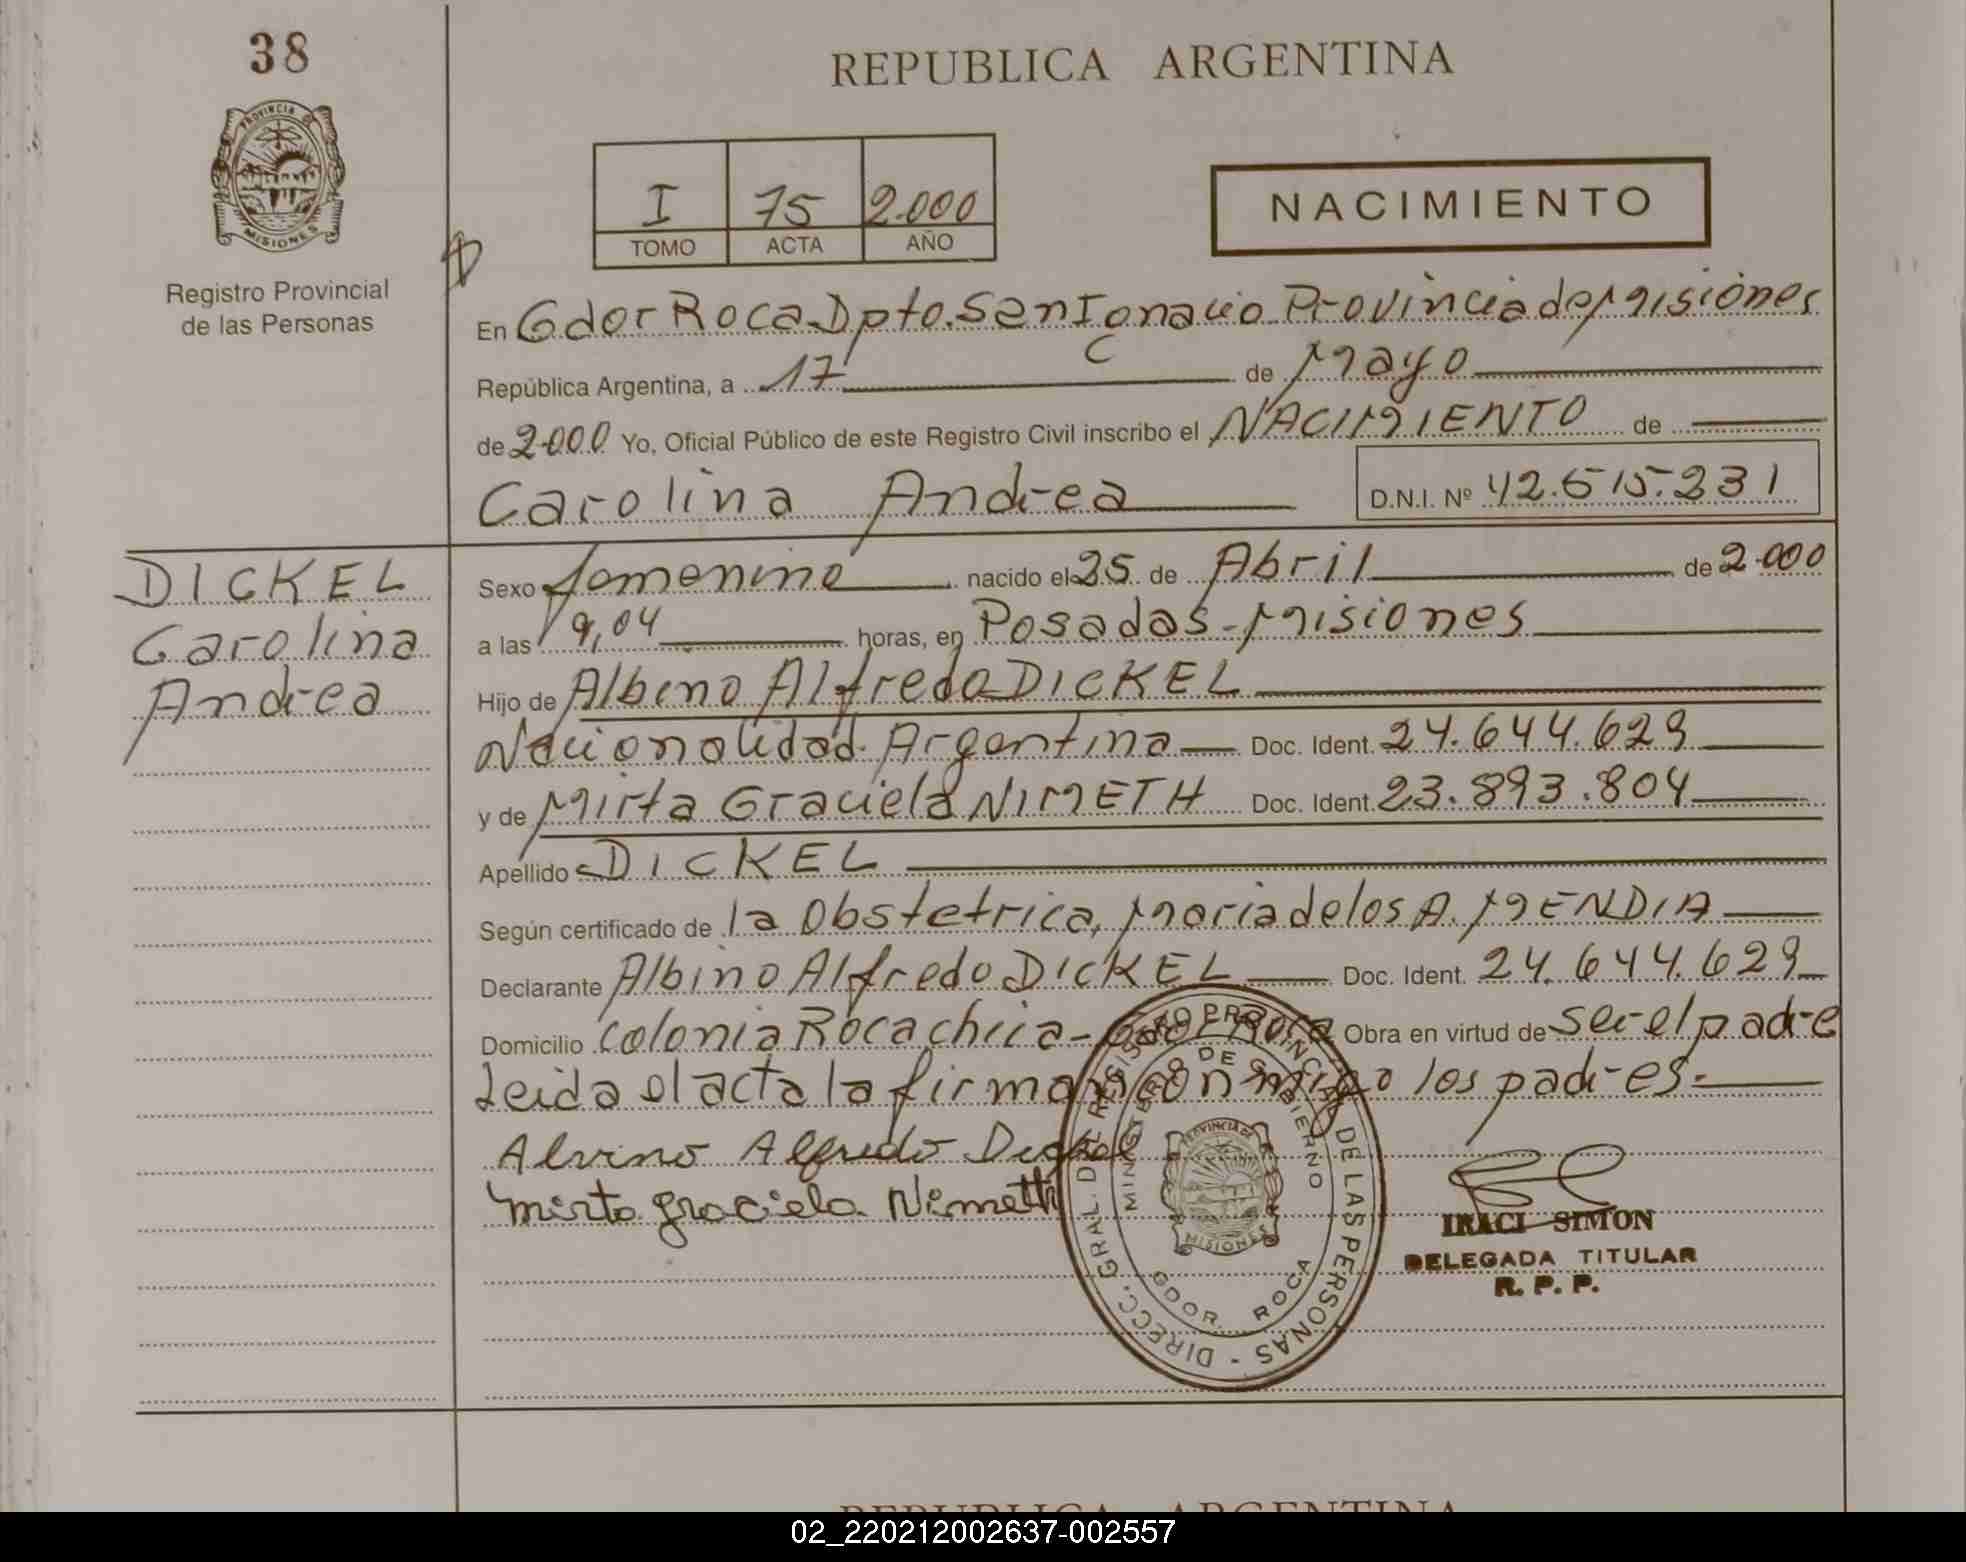 38
REPUBLICA ARGENTINA
PROVINCIA DE
MISIONES
Registro Provincial
de las Personas
I 75 2.000
TOMO ACTA AÑO
NACIMIENTO
En Gdor Roca. Dpto. San Ignacio Provincia de Misiones
República Argentina, a 17 de Mayo
de 2.000 Yo, Oficial Público de este Registro Civil inscribo el NACIMIENTO de
Carolina Andrea D.N.I. Nº 42.515.231
DICKEL
Carolina
Andrea
Sexo femenino nacido el 25 de Abril de 2.000
a las 9,04 horas, en Posadas - Misiones
Hijo de Albino Alfredo DICKEL
Nacionalidad Argentina Doc. Ident. 24.644.629
y de Mirta Graciela NIMETH Doc. Ident. 23.893.804
Apellido DICKEL
Según certificado de la Obstetrica, Maria de los A. MENDIA
Declarante Albino Alfredo DICKEL Doc. Ident. 24.644.629
Domicilio Colonia Roca chica - Gdor Roca Obra en virtud de ser el padre
Leida el acta la firman conmigo los padres.
Alvino Alfredo Dickel
Mirta Graciela Nimeth
DIRECC. GRAL. DEL REGISTRO PROVINCIAL DE LAS PERSONAS -
MINISTERIO DE GOBIERNO
PROVINCIA DE
MISIONES
GDOR. ROCA
IRACI SIMON
DELEGADA TITULAR
R. P. P.
REPUBLICA ARGENTINA
02_220212002637-002557